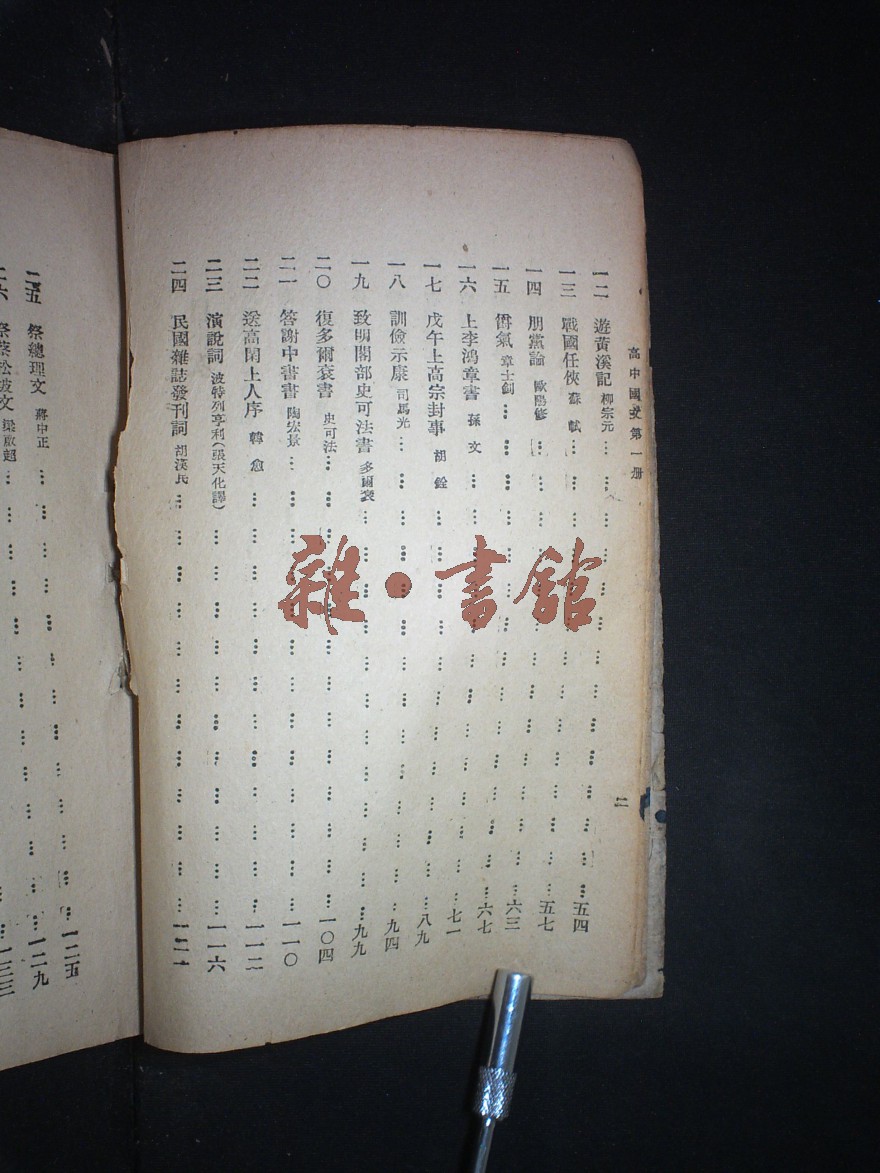 高中國文第一册
二
一二 遊黃溪記 柳宗元 … 五四
一三 戰國任俠 蘇軾 … 五七
一四 朋黨論 歐陽修 … 六三
一五 … 氣 章士釗 … 六七
一六 上李鴻章書 孫文 … 七一
一七 戊午上高宗封事 胡銓 … 八九
一八 訓儉示康 司馬光 … 九四
一九 致明閣部史可法書 多爾袞 … 九九
二〇 復多爾袞書 史可法 … 一〇四
二一 答謝中書書 陶宏景 … 一一〇
二二 送高閑上人序 韓愈 … 一一二
二三 演說詞 波特列亨利(張天化譯) … 一一六
二四 民國雜誌發刊詞 胡漢民 …
二五 祭總理文 蔣中正 … 一二五
二六 祭蔡松坡文 梁啟超 … 一二九
一三三
雜·書館